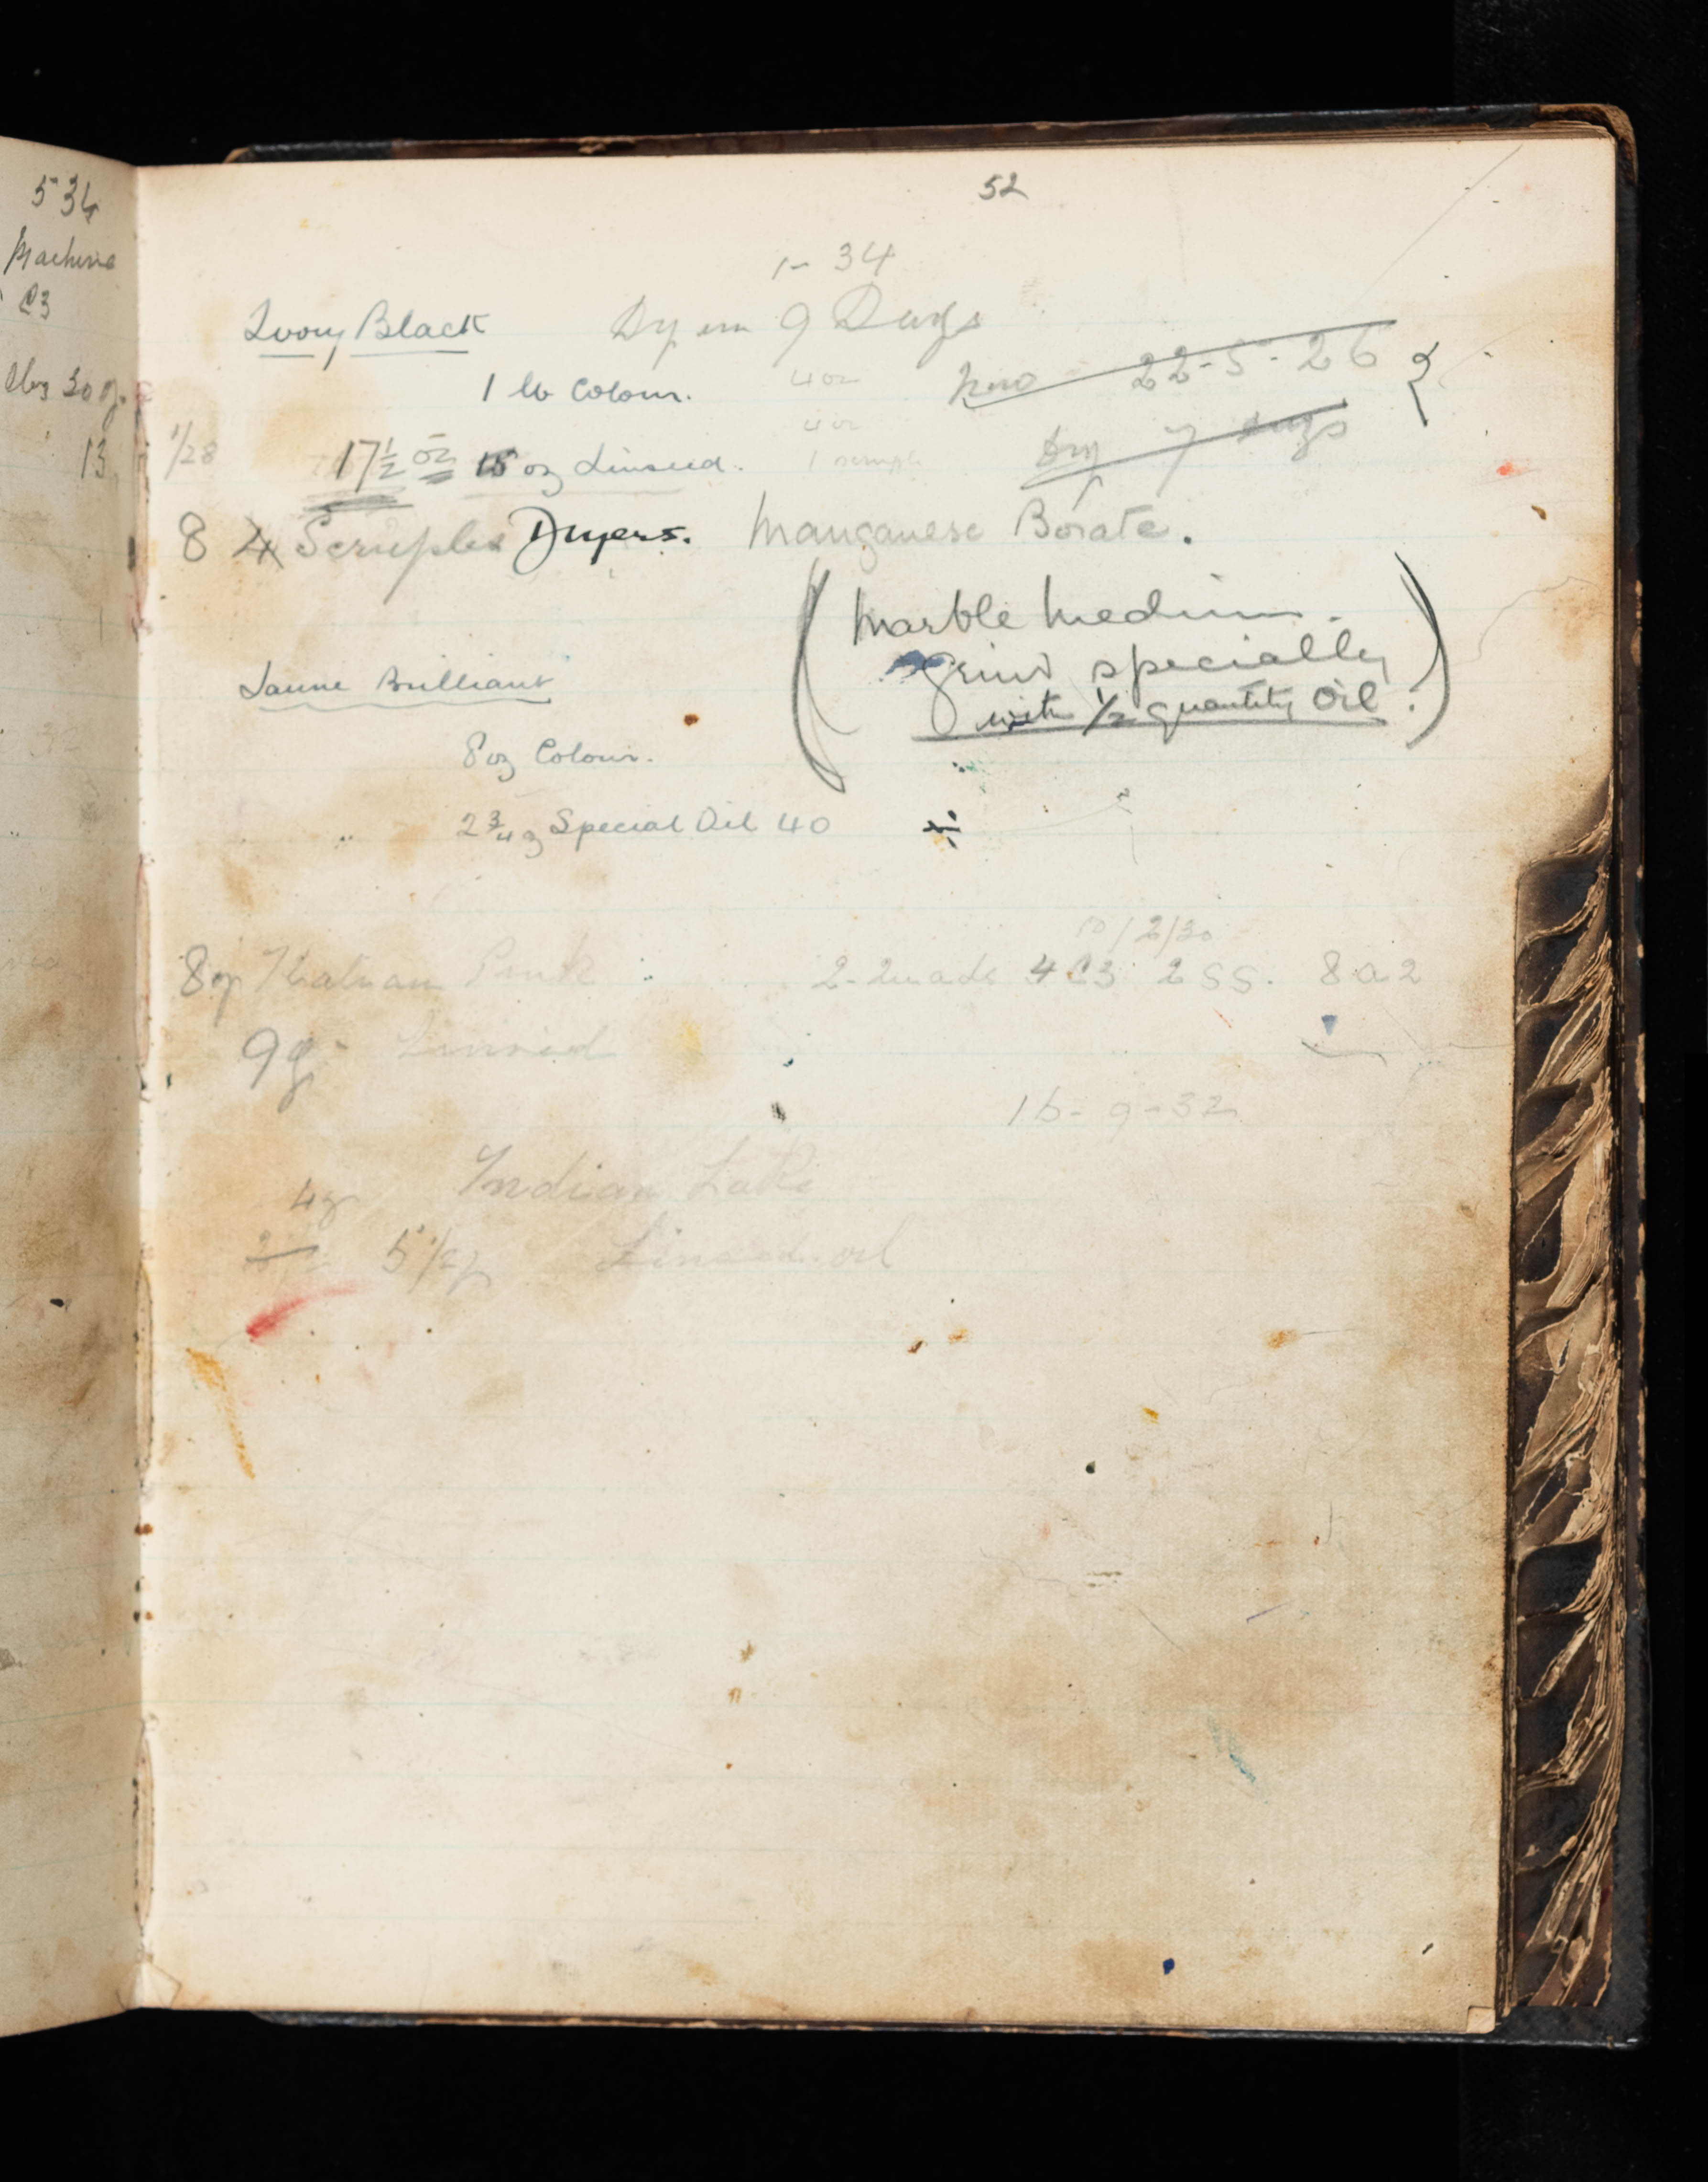 5 34
Machine
C3
30
13
52
1-34
Ivory Black Dry in 9 Days
1 lb Colour. 4 oz
22-5-26
4 oz
Dry 7 days
1/28 17½ oz 15 oz Linseed. 1 scruple
8 4 Scruples Dryers. Manganese Borate.
(Marble Medium.
Grind specially
with ½ quantity Oil.)
Jaune Brilliant
8 oz Colour.
2¾ oz Special Oil 40
/2/30
8 oz Italian Pink 2- 4 C3 2 SS. 8 a 2
9 oz Linseed
16-9-32
4 oz Indian Lake
5½ oz Linseed oil